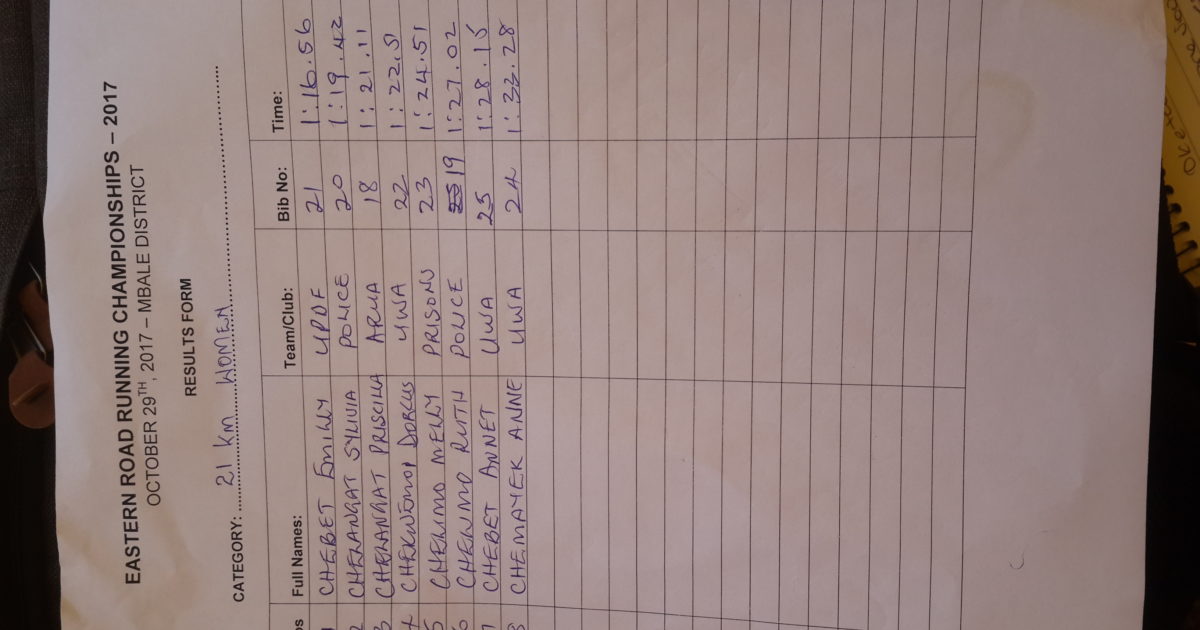 EASTERN ROAD RUNNING CHAMPIONSHIPS – 2017
OCTOBER 29TH, 2017 – MBALE DISTRICT
RESULTS FORM
CATEGORY: 21 Km WOMEN
os Full Names: Team/Club: Bib No: Time:
1 CHEBET EMILLY UPDF 21 1:16.56
2 CHELANGAT SYLIVIA POLICE 20 1:19.42
3 CHELANGAT PRISCILLA ARUA 18 1:21.11
4 CHEKWEMOI DORCUS UWA 22 1:22.51
5 CHEKUMO MELLY PRISONS 23 1:24.51
6 CHEKUMO RUTH POLICE 19 1:27.02
7 CHEBET ANNET UWA 25 1:28.15
8 CHEMAYEK ANNE UWA 24 1:33.28